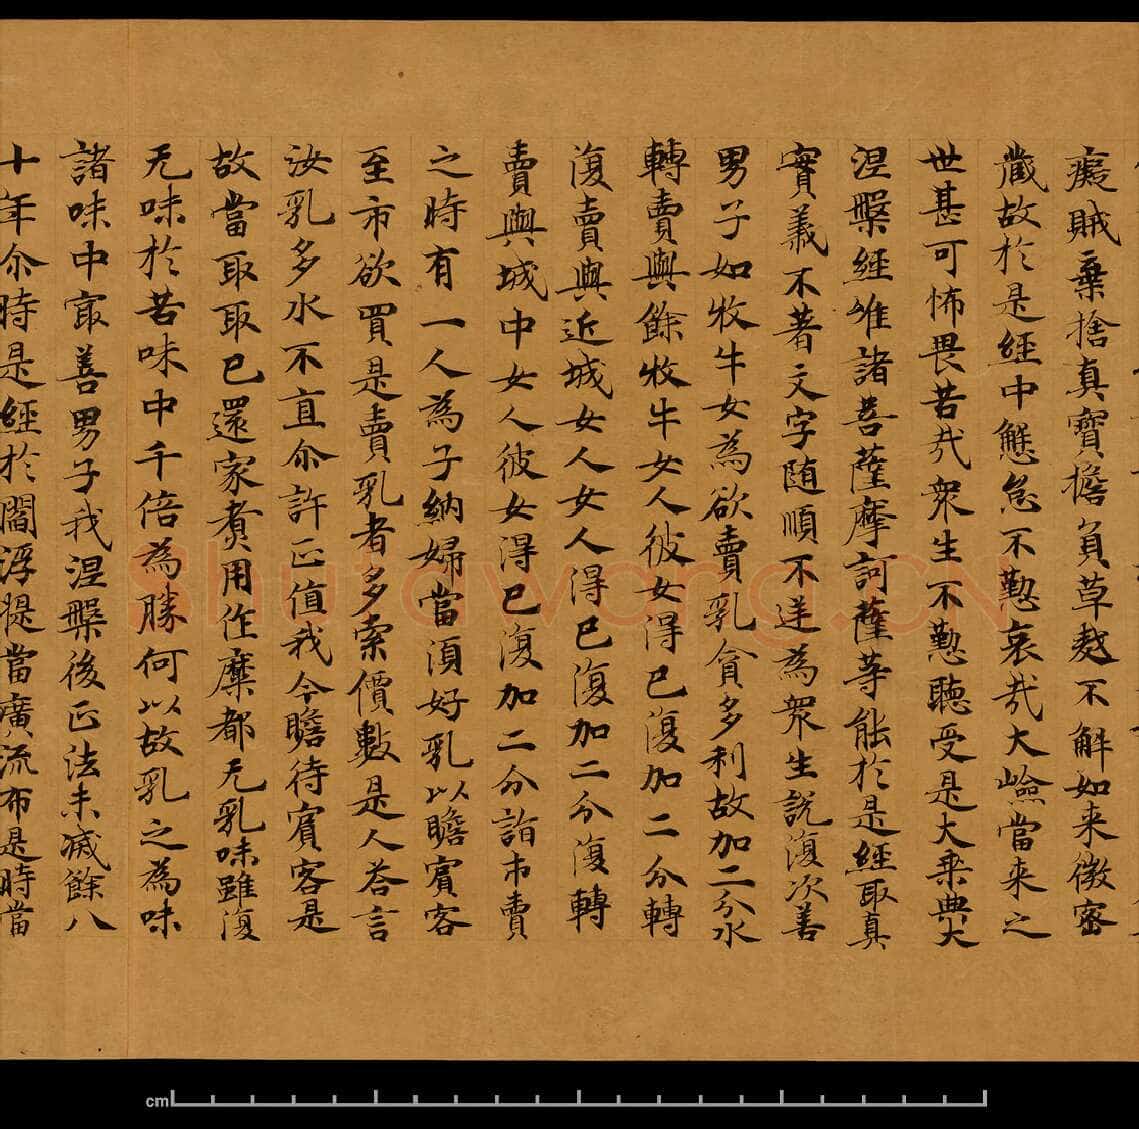 癡賊棄捨真寶擔負草𧄍不解如来微密
藏故於是經中懈怠不懃哀哉大嶮當来之
世甚可怖畏苦哉衆生不懃聽受是大乗典大
涅槃經唯諸菩薩摩訶薩等能於是經取真
實義不著文字随順不逆為衆生説復次善
男子如牧牛女為欲賣乳貪多利故加二分水
轉賣與餘牧牛女人彼女得已復加二分轉
復賣與近城女人女人得已復加二分復轉
賣與城中女人彼女得已復加二分詣市賣
之時有一人為子納婦當湏好乳以贍賓客
至市欲買是賣乳者多索價數是人荅言
汝乳多水不直尒許正值我今瞻待賓客是
故當取取已還家煑用作糜都无乳味雖復
无味於苦味中千倍為勝何以故乳之為味
諸味中㝡善男子我涅槃後正法未滅餘八
十年尒時是經於閻浮提當廣流布是時當
cm
Shufawang.CN